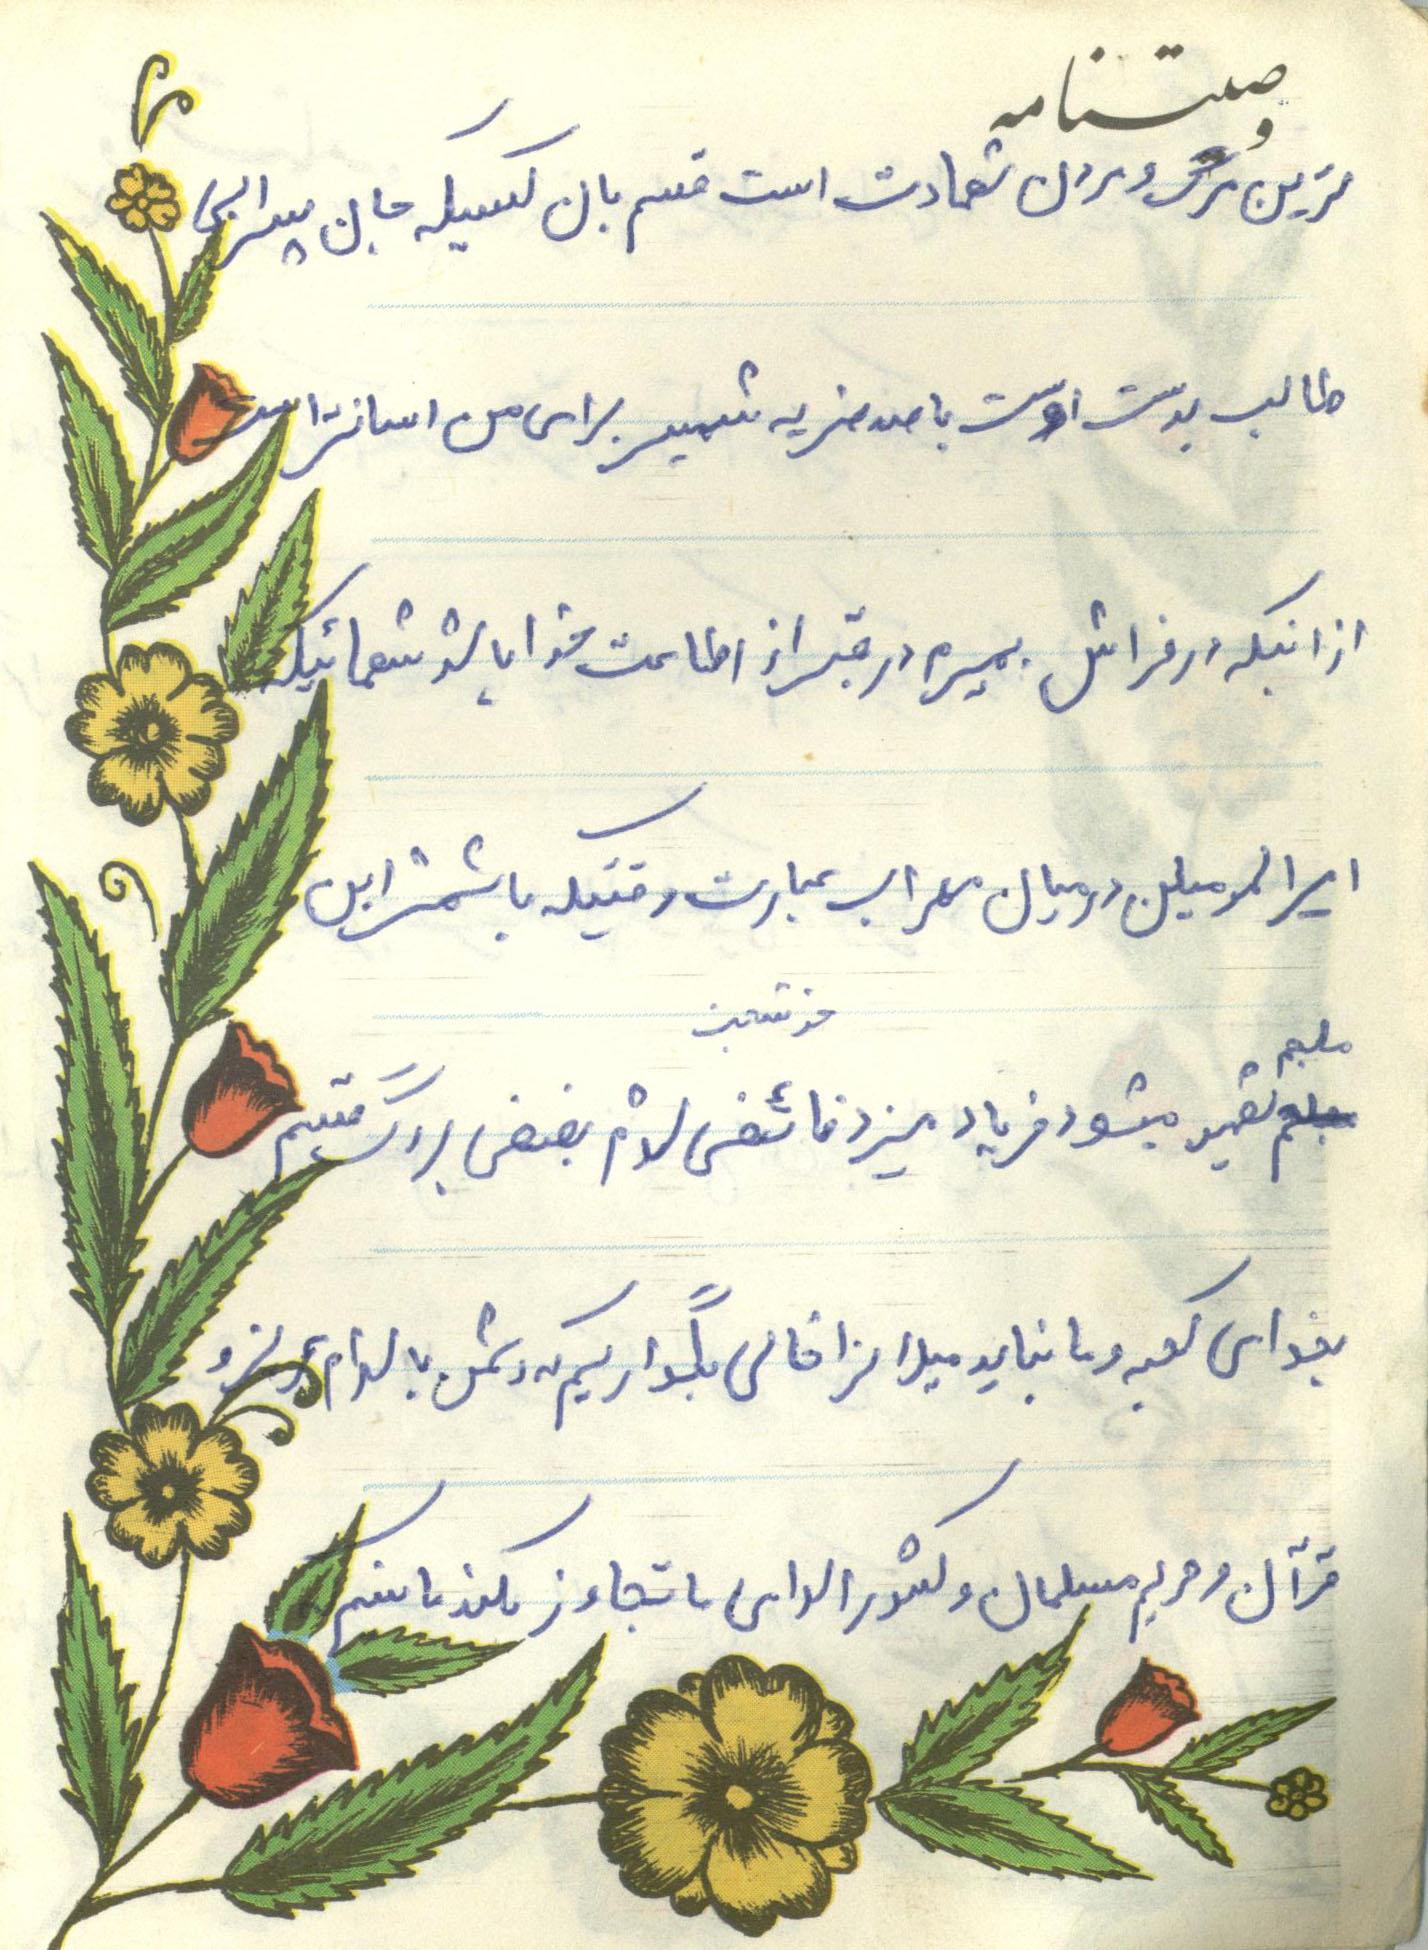 وصیتنامه
ترین مرگ و مردن شهادت است قسم بان کسیکه جان پسر ابی
طالب بدست اوست با صد ضربه شمشیر برای من اسانتر است
از انیکه در فراش بمیرم در غیر از اطاعت خدا باشد شهمائیکه
امیرالمومنین در میان محراب عبادت وقتیکه با شمشیر ابن
ملجم
خوشبخت
شهید میشود فریاد میزد فا شخص لازم بعضی بزرگ قسم
بخدای کعبه و ما نباید میدانرا خالی بگذاریم که دشمن با اسلام و
قرآن و حریم مسلمان و کشور اسلامی ما تجاوز بکند ما نسم که